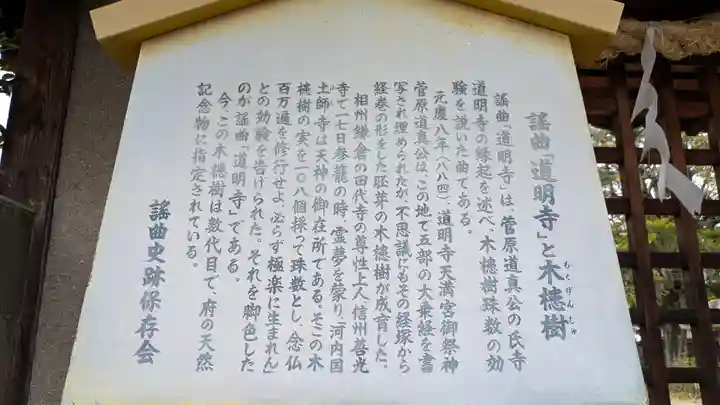 謡曲「道明寺」と木槵樹
もくげんじゅ
謡曲「道明寺」は、菅原道真公の氏寺
道明寺の縁起を述べ、木槵樹珠数の効
験を説いた曲である。
元慶八年(八八四)、道明寺天満宮御祭神
菅原道真公は、この地で五部の大乗経を書
写され埋められたが、不思議にもその経塚から
経巻の形をした胚芽の木槵樹が成育した。
相州鎌倉の田代寺の尊性上人、信州善光
寺で一七日参籠の時、霊夢を蒙り、「河内国
土師寺は天神の御在所である。そこの木
槵樹の実を一〇八個採って珠数とし、念仏
百万遍を修行せよ、必らず極楽に生まれん」
との効験を告げられた。それを脚色した
のが謡曲「道明寺」である。
今、この木槵樹は数代目で、府の天然
記念物に指定されている。
謡曲史跡保存会